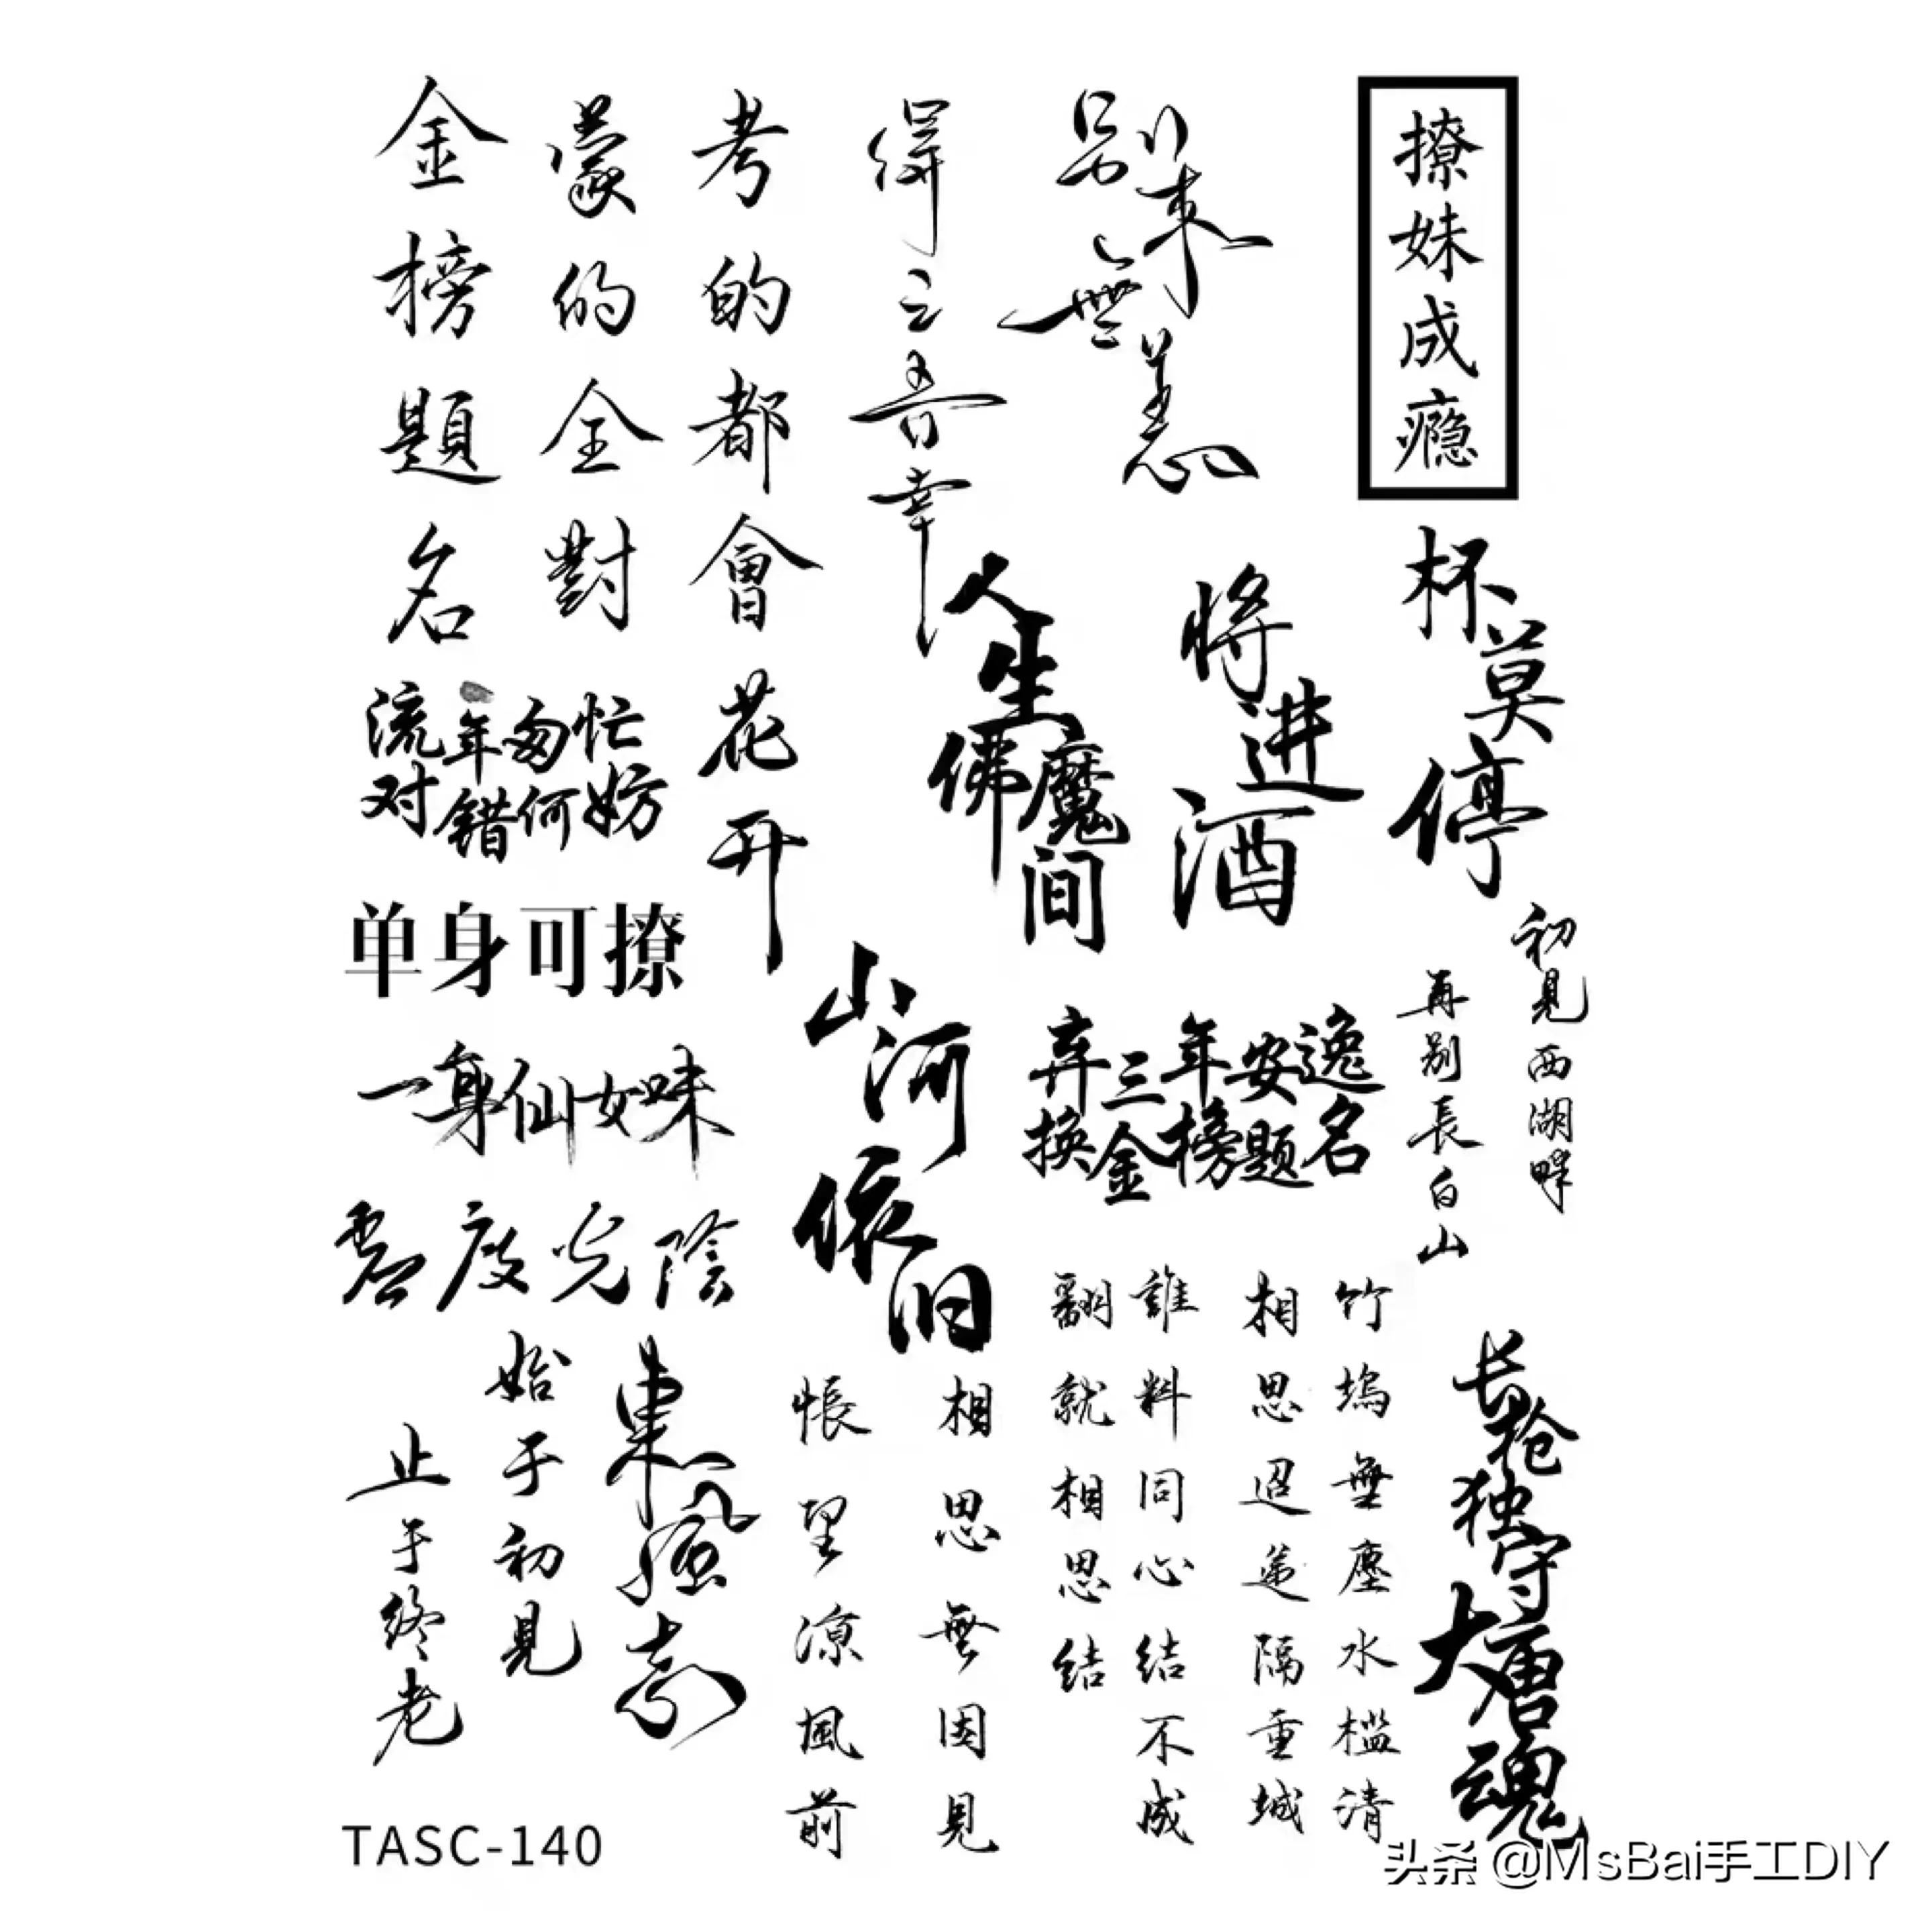 撩妹成瘾
别来無恙
得之吾幸
考的都會
蒙的全對
金榜題名
花开
人生
佛魔
间
将进酒
杯莫停
流年匆忙
对错何妨
单身可撩
一身仙女味
虚度光陰
山河
依旧
弃三年安逸
换金榜题名
初見西湖畔
再别長白山
竹塢無塵水槛清
相思迢递隔重城
誰料同心结不成
翻就相思结
相思無因見
怅望凉風前
長枪独守大唐魂
東風志
始于初見
止于终老
TASC-140
头条 @MsBai手工DIY